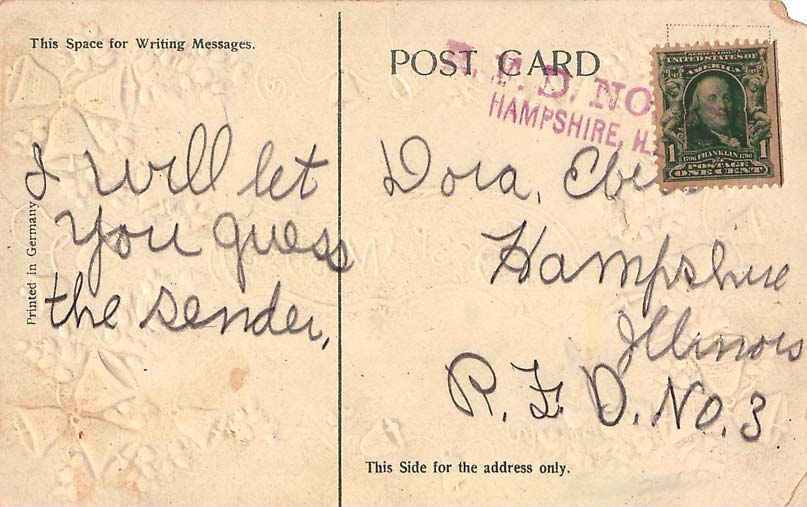 This Space for Writing Messages.
POST CARD
R. F. D. NO
HAMPSHIRE, IL
UNITED STATES OF
AMERICA
1 1
1706 FRANKLIN 1790
POSTAGE
ONE CENT
Printed in Germany
I will let
you guess
the sender.
Dora,
Hampshire
Illinois
R. F. D. No. 3
This Side for the address only.